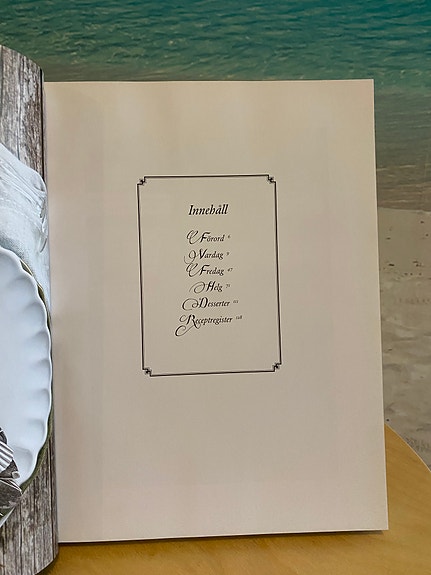 Innehåll
Förord 6
Vardag 9
Fredag 47
Helg 71
Desserter
Receptregister 128